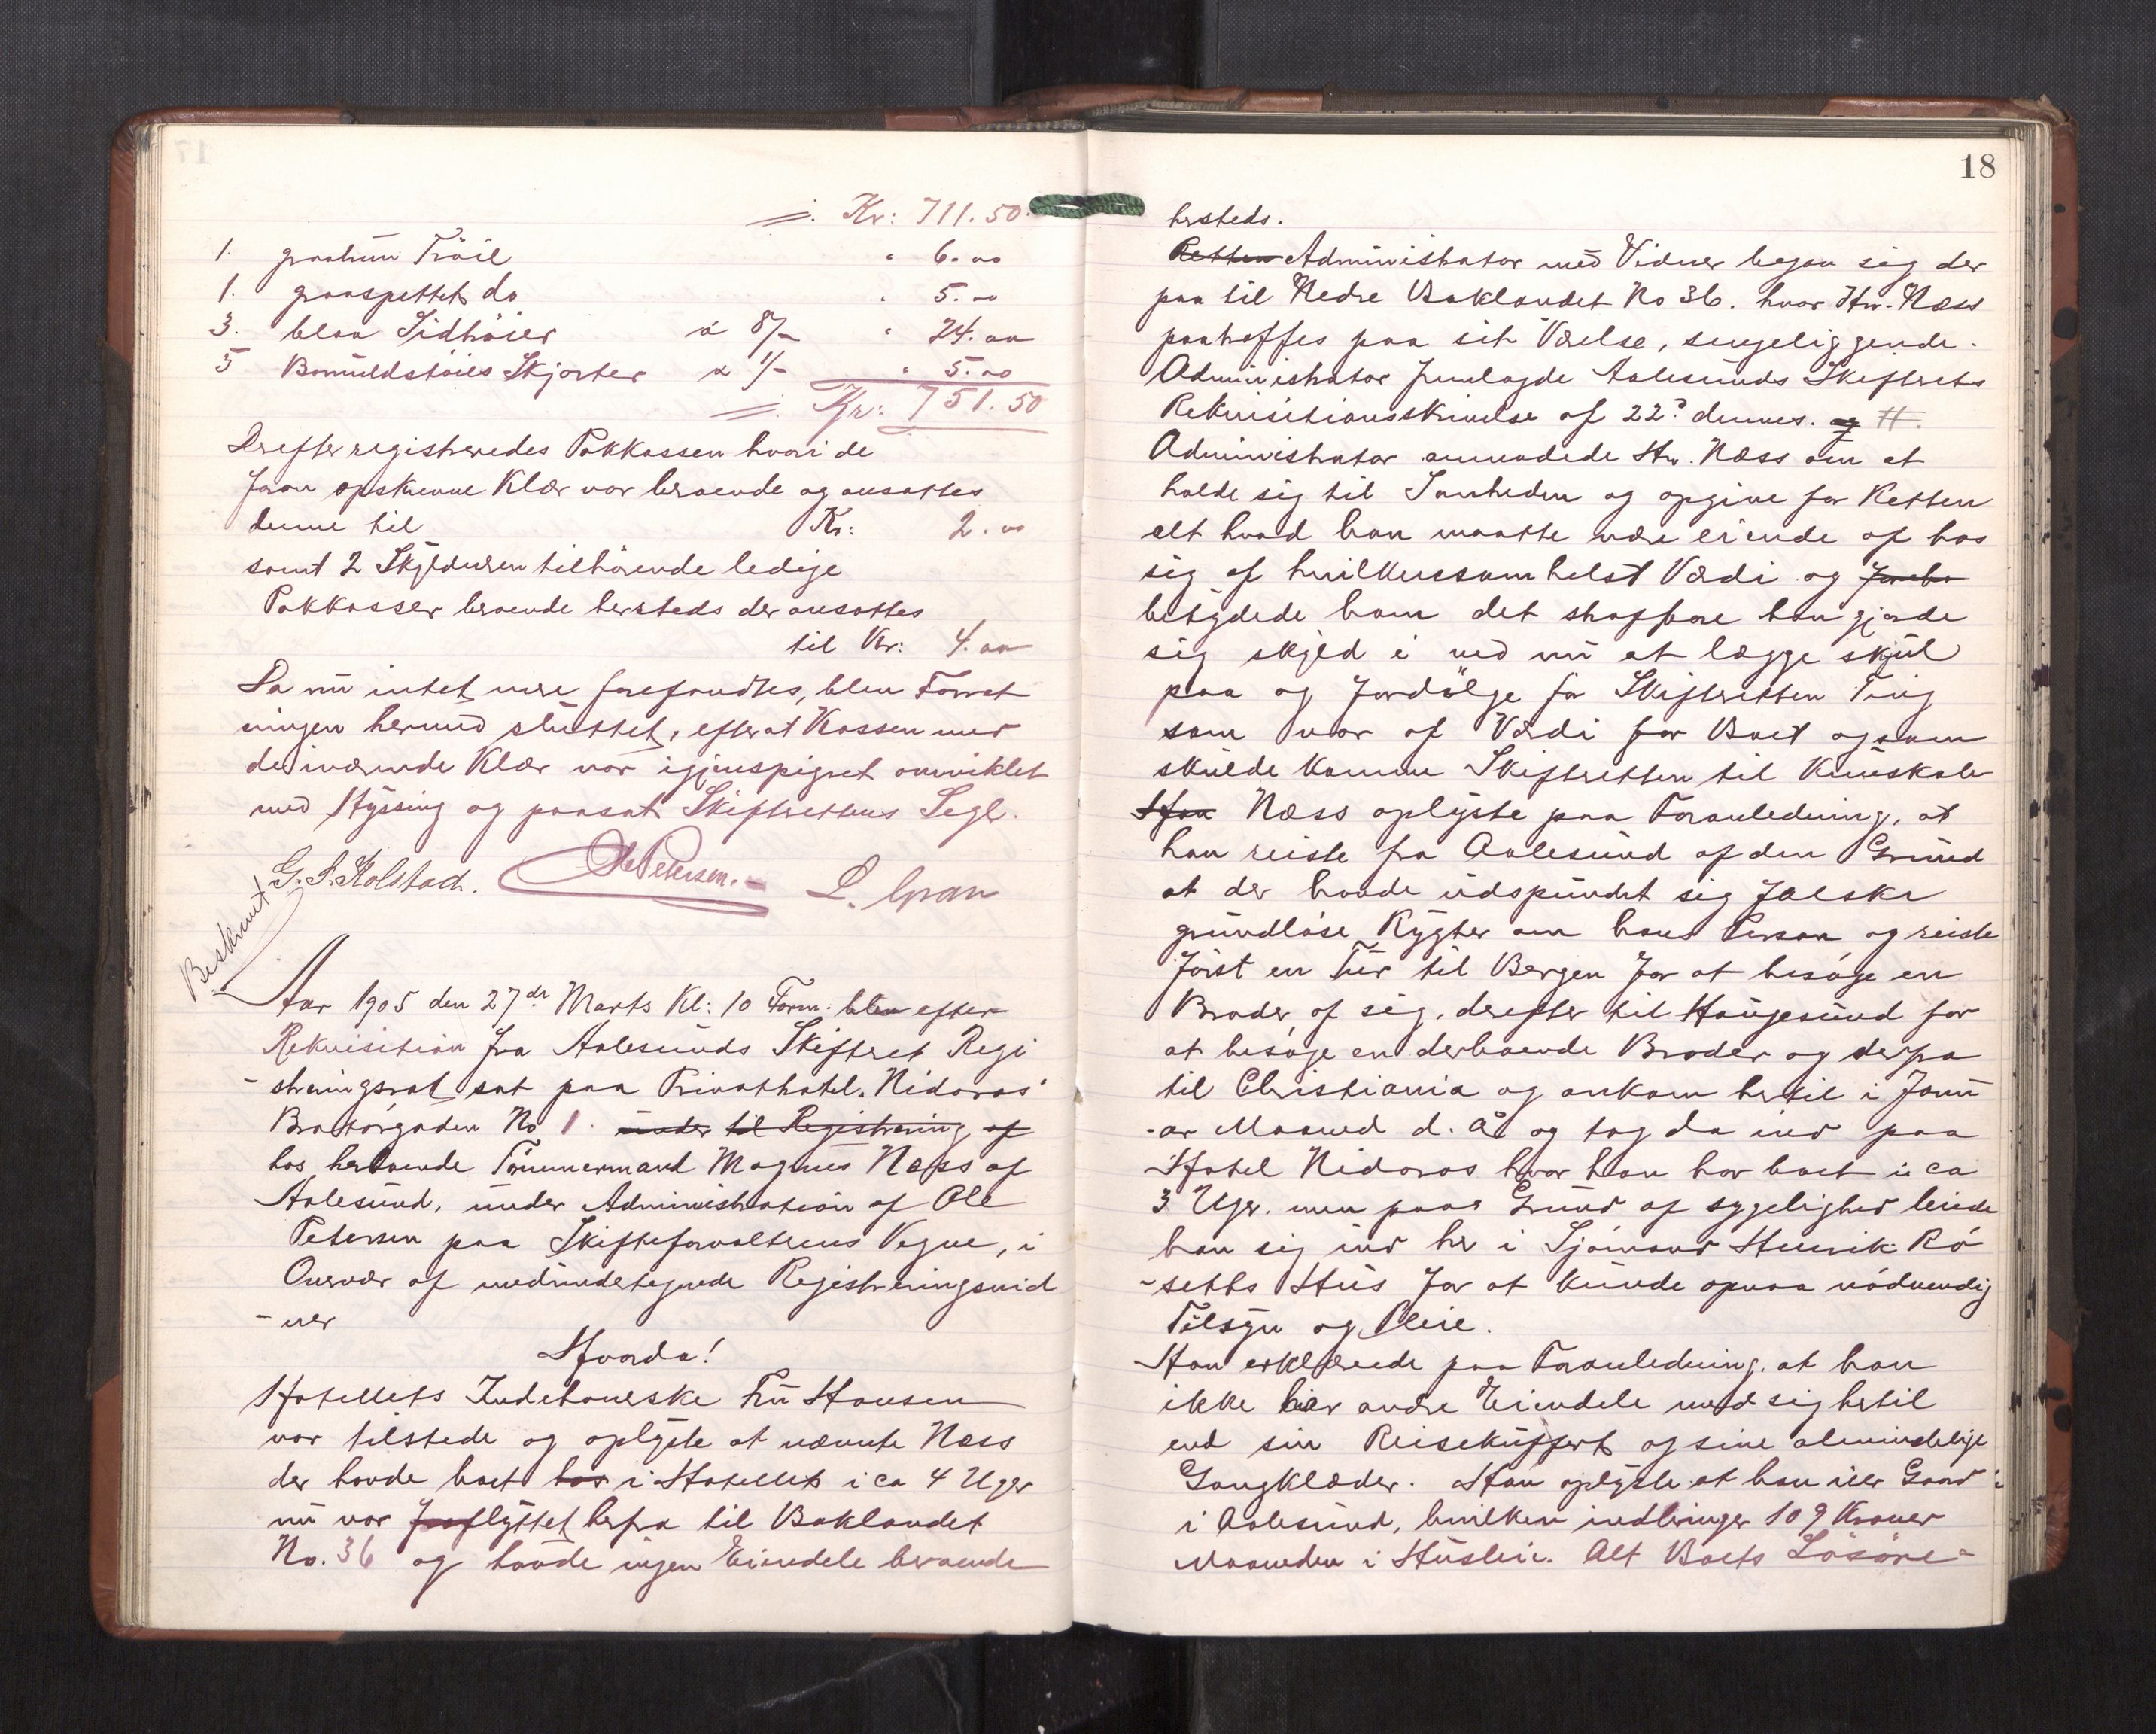 =. Kr: 711.50.
1. graabrun Tröie " 6.00
1. graaspettet do " 5.00
3. blaa Sidtröier a 8/- " 24.00
5 Bomuldstöies Skjorter a 1/- " 5.00
=. Kr: 751.50
Derefter registreredes Pakkassen hvori de
foran opskrevne Klær var beroende og ansattes
denne til Kr: 2.00
samt 2 Skyldneren tilhörende ledige
Pakkasser beroende hersteds der ansattes
til Kr: 4.00
Da nu intet mere forefandtes, blev Forret
ningen hermed sluttet, efterat Kassen med
de iværende Klær var igjenspigret omviklet
med Hyssing og paasat Skifterettens Segl.
G. S. Kolstad. Ole Petersen. L. Gran
Beskrevet
Aar 1905 den 27de Marts Kl: 10 Form. blev efter
Rekvisition fra Aalesunds Skifteret Regi
-streringsret sat paa Privathotel "Nidaros"
Bratörgaden No 1. under til Registrering af
hos herboende Tömmermand Magnus Næss af
Aalesund, under Administration af Ole
Petersen paa Skifteforvalterens Vegne, i
Overvær af medundertegnede Registreringsvid
-ner
Hvorda!
Hotellets Indehaverske Fru Hansen
var tilstede og oplyste at nævnte Næss
der havde boet her i Hotellet i ca 4 Uger
nu var fraflyttet herfra til Baklandet
No. 36 og havde ingen Eiendele beroende
18
hersteds.
Retten Administrator med Vidner begav sig der
paa til Nedre Baklandet No 36. hvor Hr. Næss
paatraffes paa sit Værelse, sengeliggende.
Administrator fremlagde Aalesunds Skifterets
Rekvisitionsskrivelse af 22de dennes. og #.
Administrator anmodede Hr. Næss om at
holde sig til Sandheden og opgive for Retten
alt hvad han maatte være eiende af hos
sig af hvilkensomhelst Værdi og
betydede ham det strafbare han gjorde
sig skyld i ved nu at lægge skjul
paa og fordölge for Skifteretten Ting
som var af Værdi for Boet og som
skulde komme Skifteretten til Kundskab
Han Næss oplyste paa Foranledning, at
han reiste fra Aalesund af den Grund
at der havde udspundet sig falske
grundlöse Rygter om hans Person og reiste
först en Tur til Bergen for at besöge en
Broder af sig, derefter til Haugesund for
at besöge en derboende Broder og derfra
til Christiania og ankom hertil i Janu
-ar Maaned d. A. og tog da ind paa
Hotel Nidaros hvor han har boet i ca
3 Uger. men paa Grund af sygelighed leiede
han sig ind her i Sjömand Henrik Rö
-setts Hus for at kunde opnaa nödvendig
Tilsyn og Pleie.
Han erklærede paa Foranledning, at han
ikke har andre Eiendele med sig hertil
end sin Reisekuffert og sine almindelige
Gangklæder. Han oplyste at han eier Gaard
i Aalesund, hvilken indbringer 109 Kroner
Maaneden i Husleie. Alt Boets Lösöre-